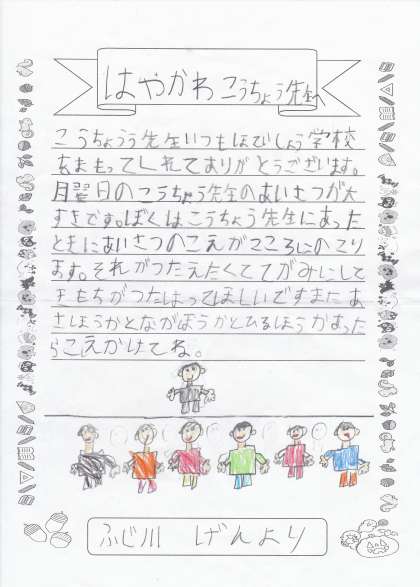 はやかわ こうちょう先生へ
こうちょうう先生いつもほでしょう学校
をまもってくれてありがとうございます。
月曜日のこうちょう先生のあいさつが大
すきです。ぼくはこうちょう先生にあった
ときにあいさつのこえがこころにのこり
ます。それがつたえたくててがみにして
きもちがつたはってほしいですまたあ
さほうかとながほうかとひるほうかあった
らこえかけてね。
ふじ川 げんより